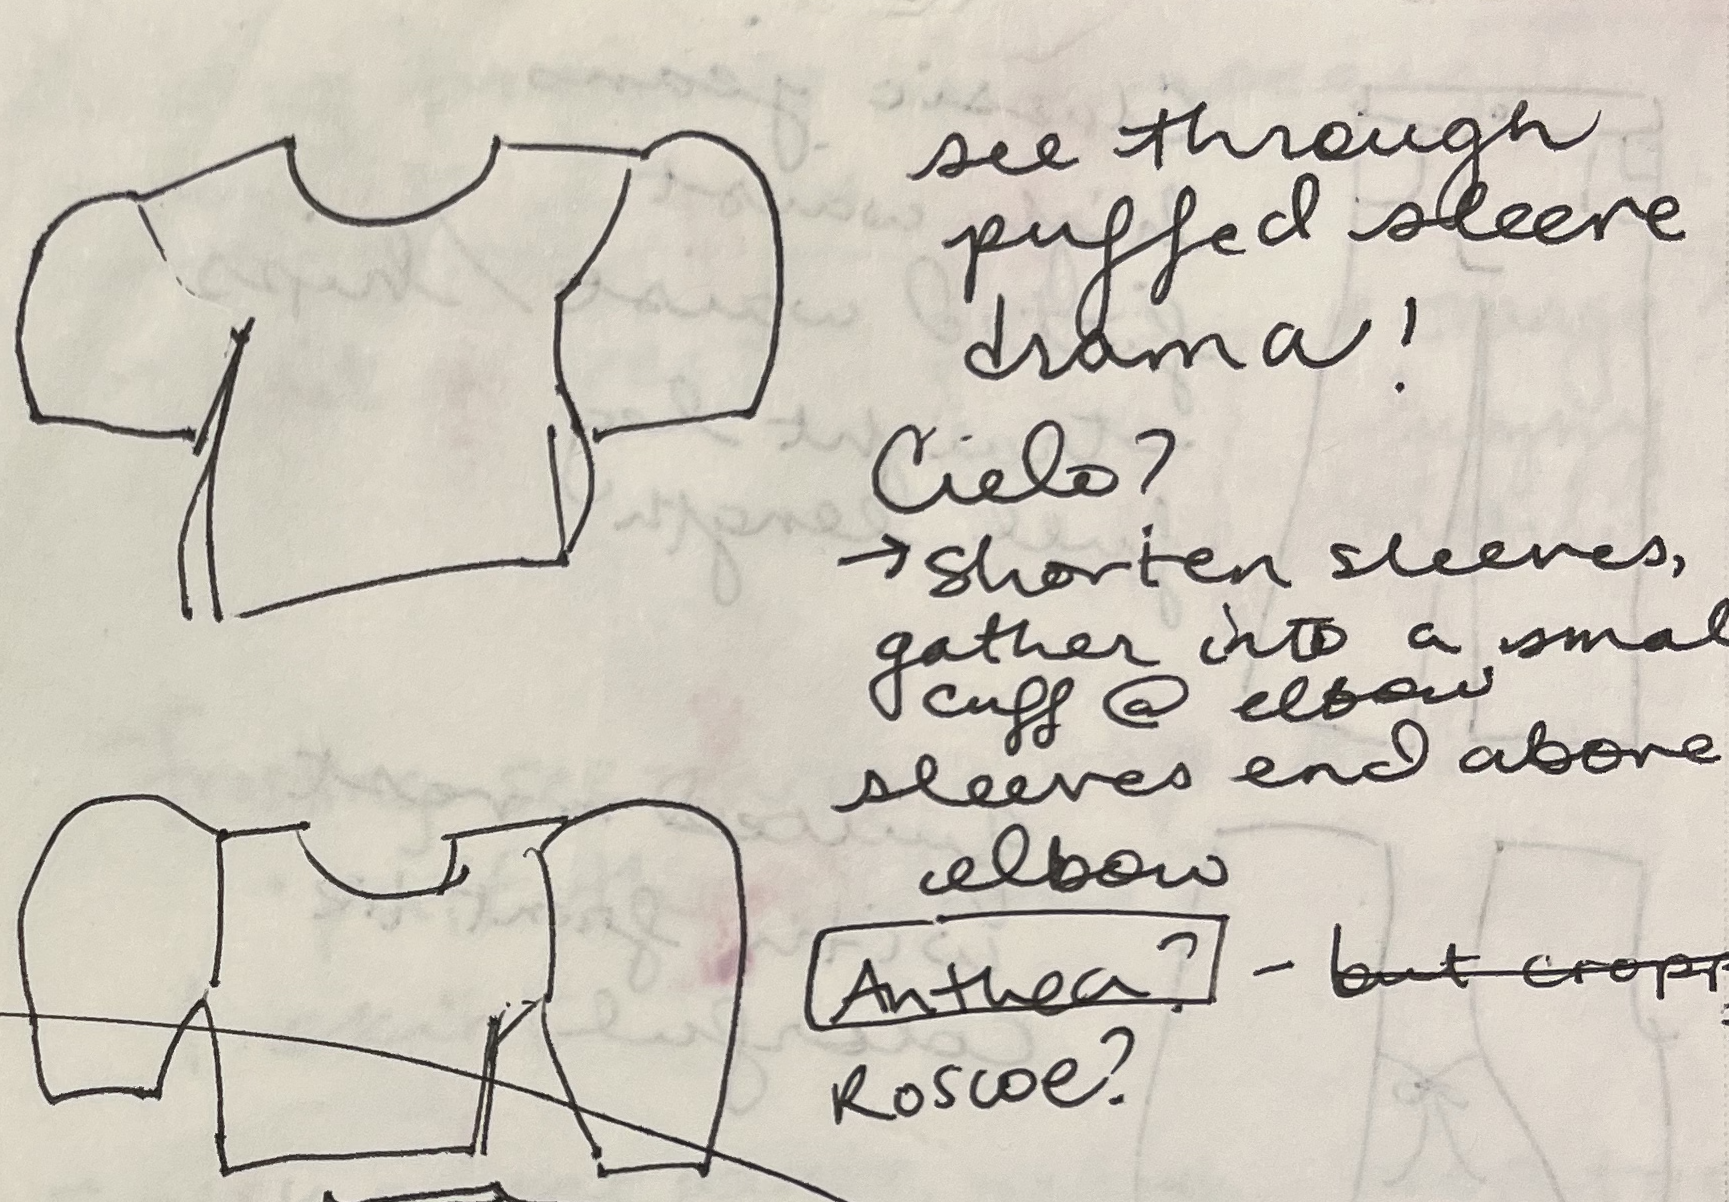 see through
puffed sleeve
drama!
Cielo?
→ Shorten sleeves,
gather into a smal
cuff @ elbow
sleeves end above
elbow
Anthea? - but cropp
Roscoe?